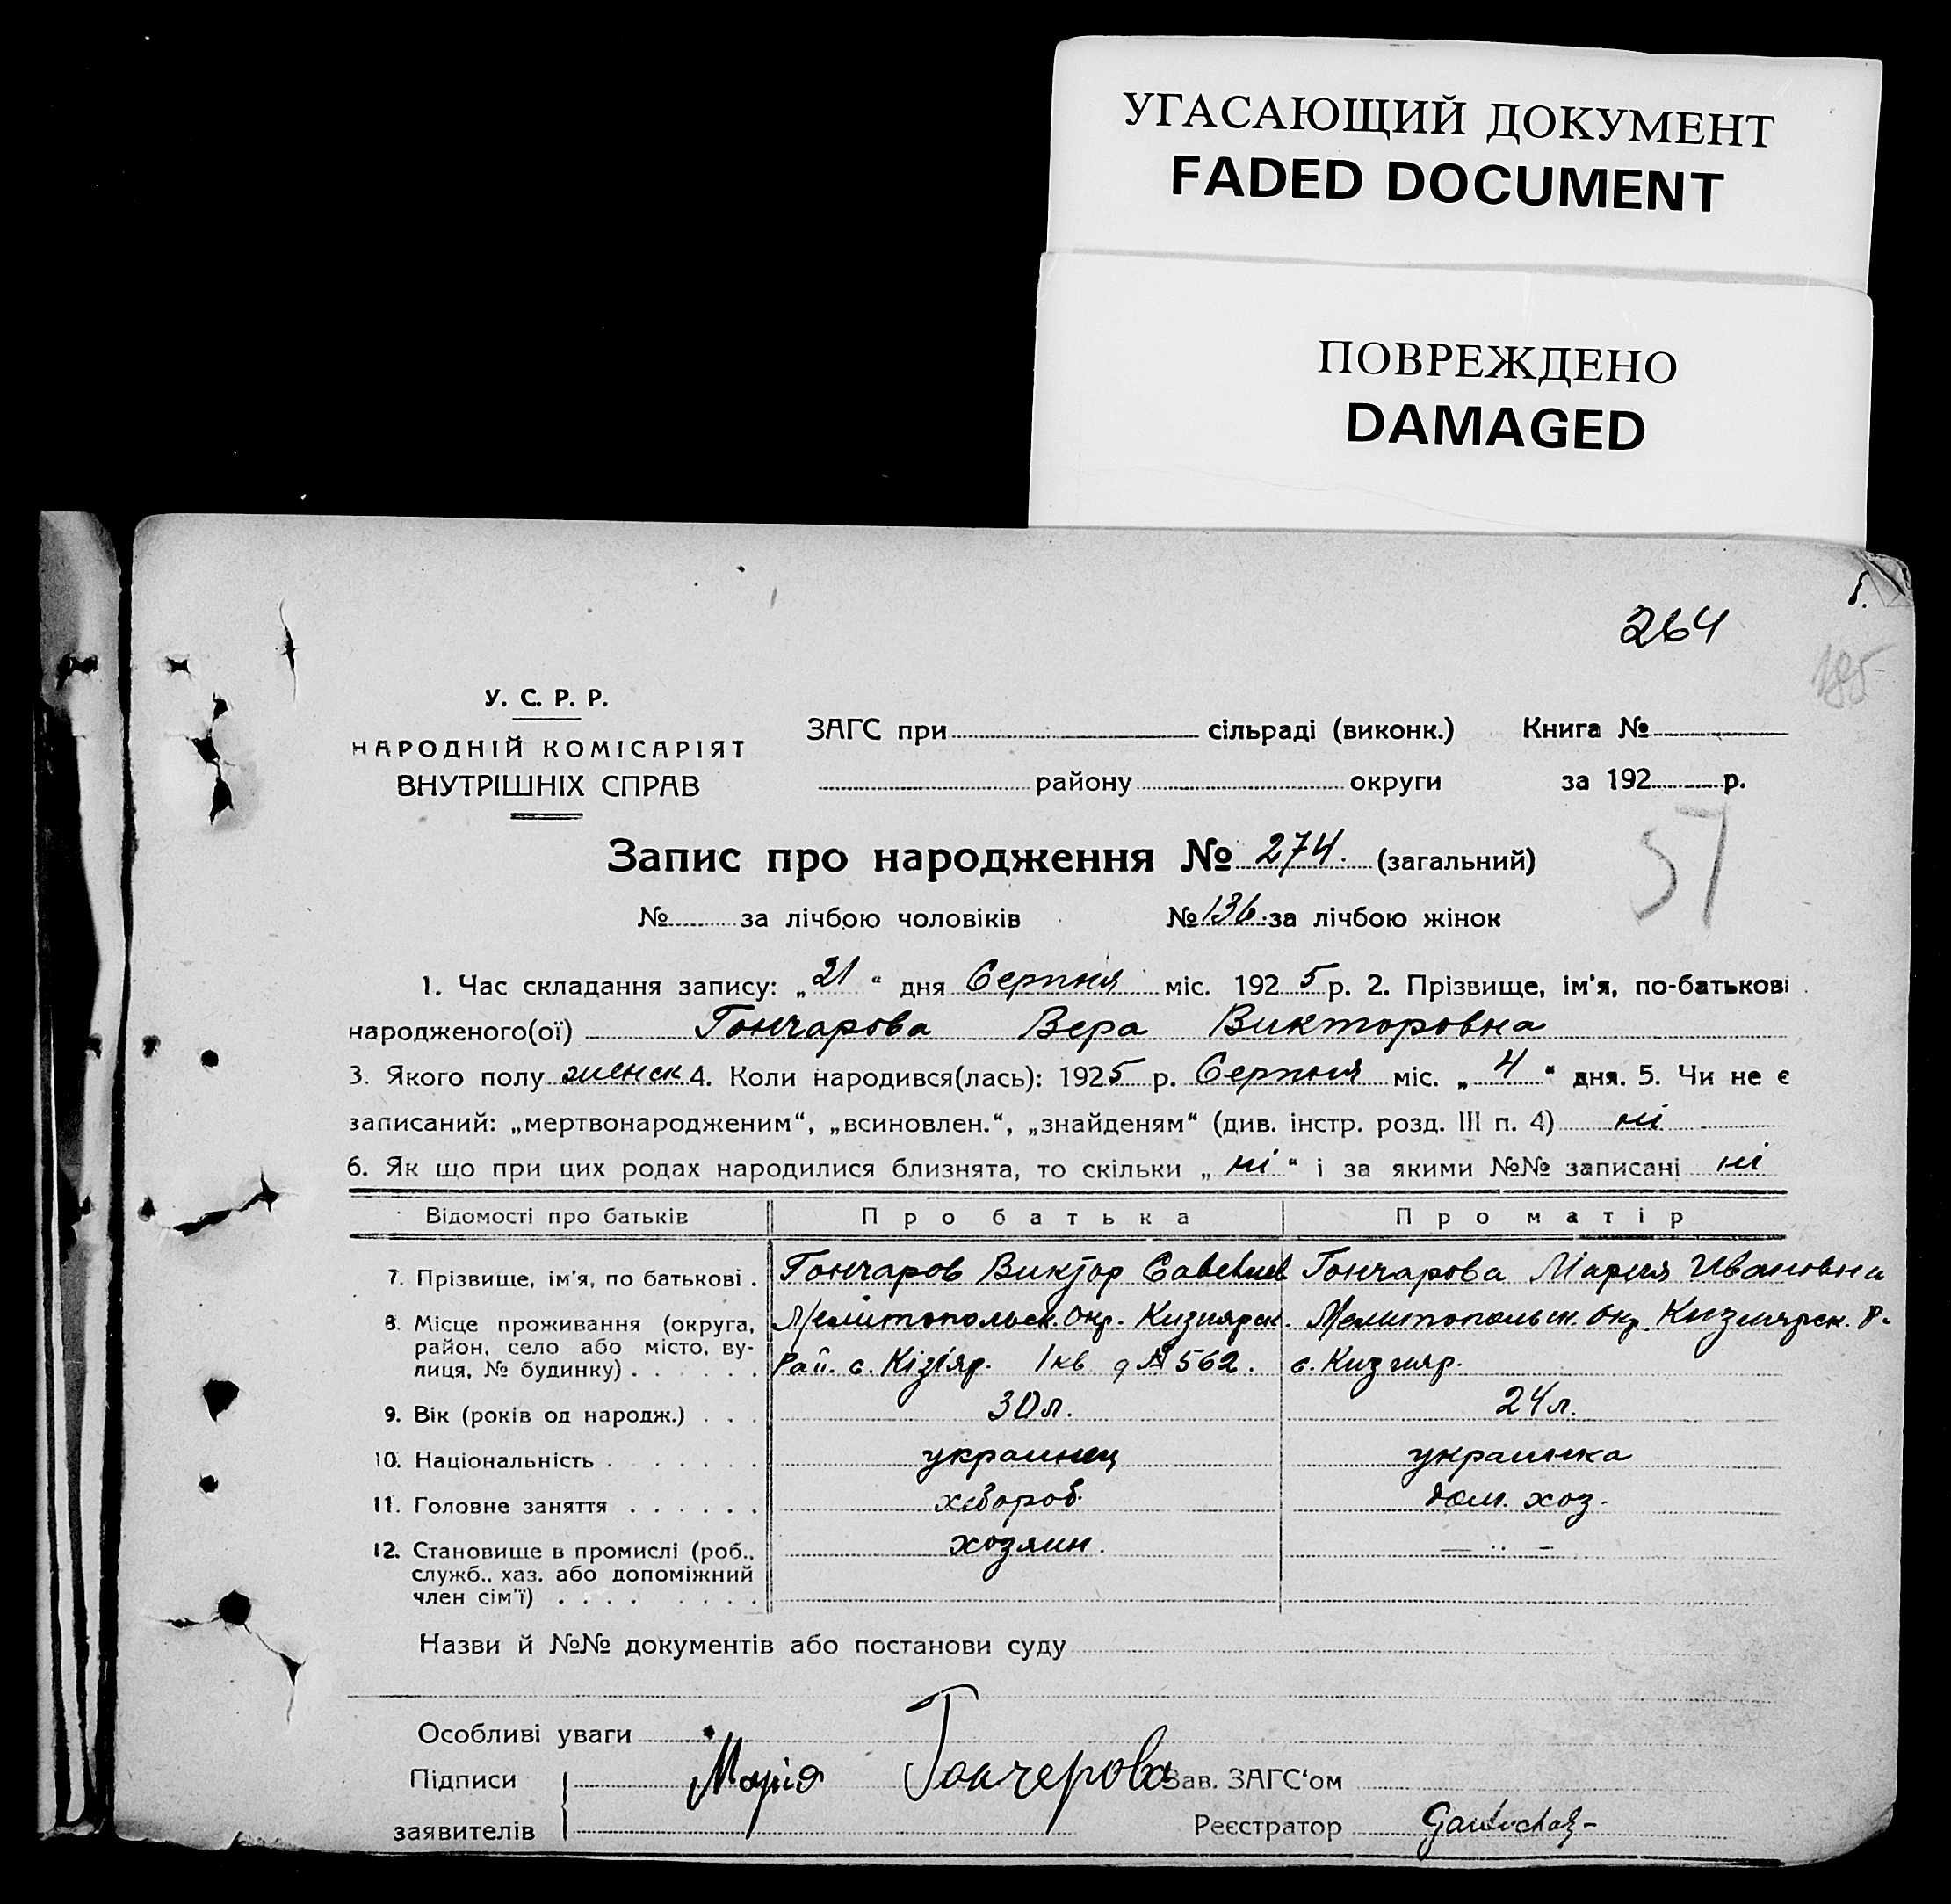 УГАСАЮЩИЙ ДОКУМЕНТ
FADED DOCUMENT
ПОВРЕЖДЕНО
DAMAGED
264
185
У. С. Р. Р.
НАРОДНІЙ КОМІСАРІЯТ
ВНУТРІШНІХ СПРАВ
ЗАГС при сільраді (виконк.) Книга №
району округи за 192 р.
57
Запис про народження № 274. (загальний)
№ за лічбою чоловіків № 136. за лічбою жінок
1. Час складання запису: „21“ дня Серпня міс. 1925 р. 2. Прізвище, ім'я, по-батькові
народженого(ої) Гончарова Вера Викторовна
3. Якого полу женск 4. Коли народився(лась): 1925 р. Серпня міс. „4“ дня. 5. Чи не є
записаний: „мертвонародженим“, „всиновлен.“, „знайденям“ (див. інстр. розд. III п. 4) ні
6. Як що при цих родах народилися близнята, то скільки „ні“ і за якими №№ записані ні
Відомості про батьків Про батька Про матір
7. Прізвище, ім'я, по батькові . Гончаров Виктор Гончарова Мария Ивановна
8. Місце проживання (округа, Мелитопольск. окр. Кизиярск. Мелитопольск. окр. Кизиярск. р.
район, село або місто, ву-
лиця, № будинку) . . . . . . Рай. с. Кізіяр. 1 кв № 562. с. Кизияр.
9. Вік (років од народж.) . . . 30 л. 24 л.
10. Національність . . . . . . . украинец украинка
11. Головне заняття . . . . . . хлбороб. дом. хоз.
12. Становище в промислі (роб., хозяин. — ·· —
служб., хаз. або допоміжний
член сім'ї) . . . . . . . .
Назви й №№ документів або постанови суду
Особливі уваги
Підписи Марія Гончерова Зав. ЗАГС'ом
заявителів Реєстратор